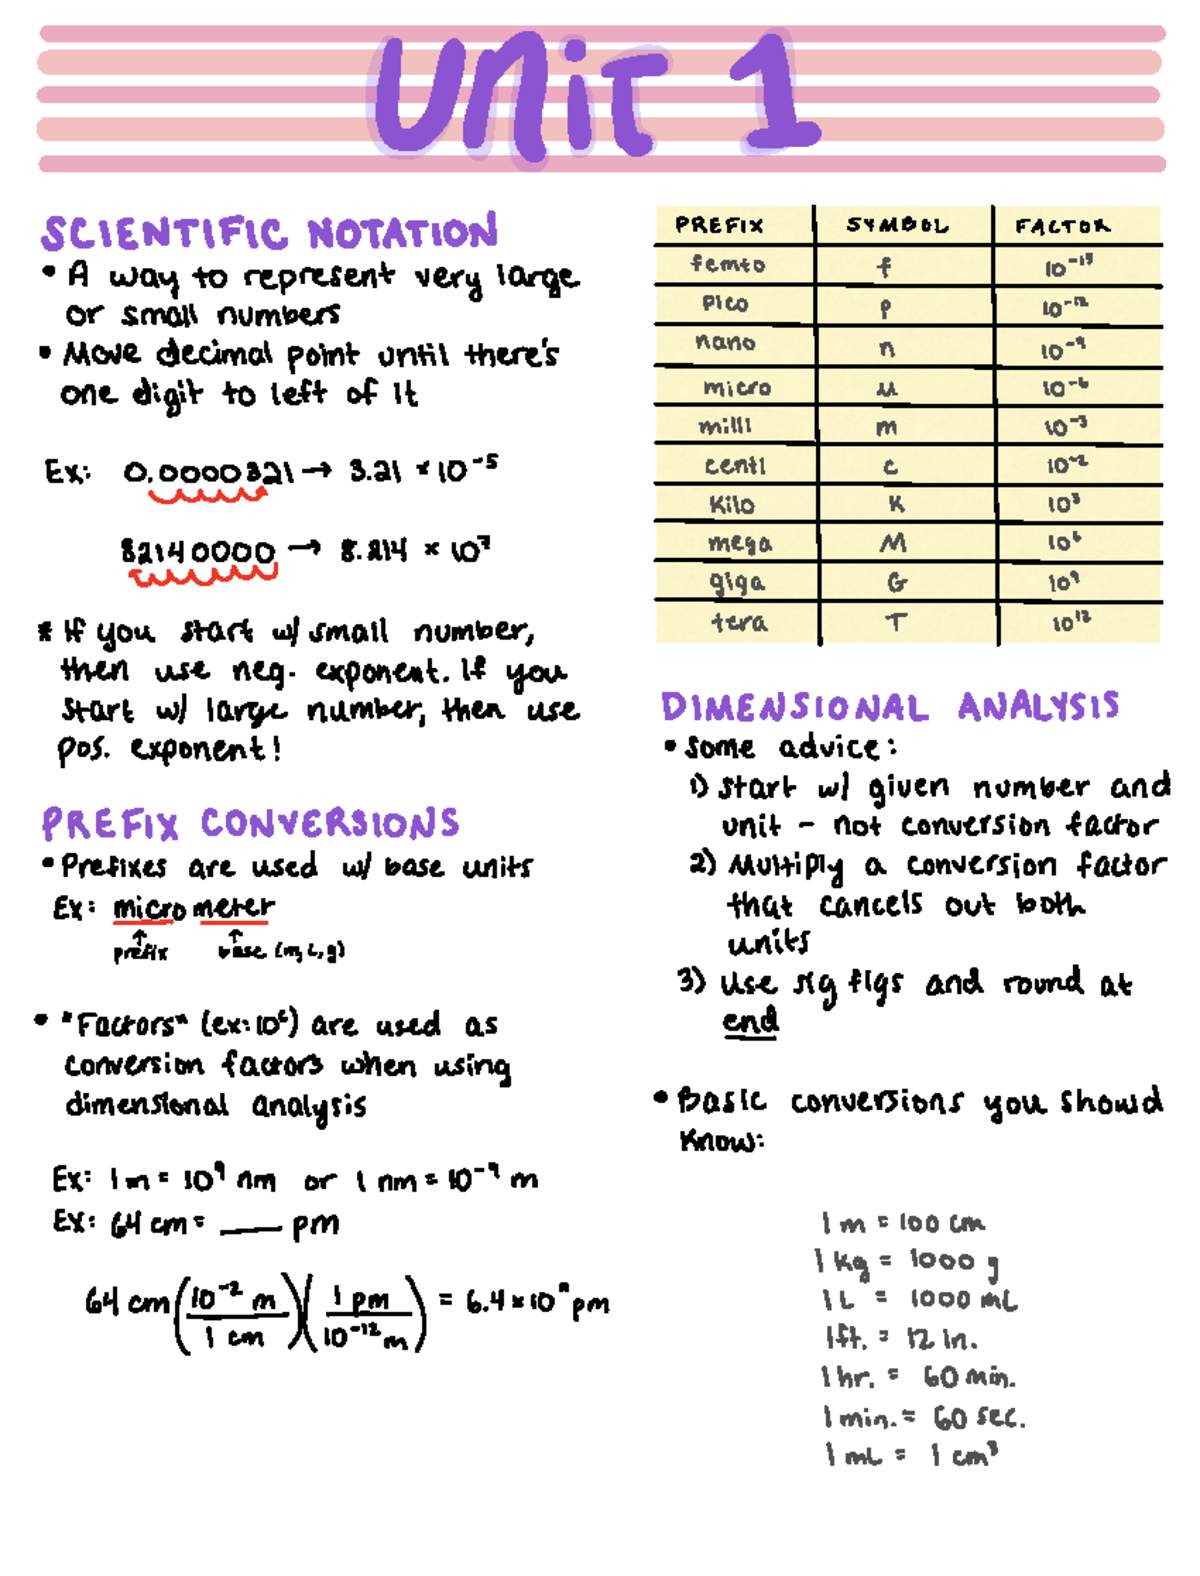 Unit 1
SCIENTIFIC NOTATION
• A way to represent very large
or small numbers
• Move decimal point until there's
one digit to left of it
Ex: 0.0000321 → 3.21 × 10⁻⁵
82140000 → 8.214 × 10⁷
* If you start w/ small number,
then use neg. exponent. If you
start w/ large number, then use
pos. exponent!
PREFIX CONVERSIONS
• Prefixes are used w/ base units
Ex: micrometer
prefix base (m, L, g)
• "Factors" (ex: 10⁶) are used as
conversion factors when using
dimensional analysis
Ex: 1 m = 10⁹ nm or 1 nm = 10⁻⁹ m
Ex: 64 cm = ____ pm
64 cm (10⁻² m / 1 cm)(1 pm / 10⁻¹² m) = 6.4 × 10 pm
PREFIX SYMBOL FACTOR
femto f 10⁻¹⁵
pico p 10⁻¹²
nano n 10⁻⁹
micro μ 10⁻⁶
milli m 10⁻³
centi c 10⁻²
Kilo K 10³
mega M 10⁶
giga G 10⁹
tera T 10¹²
DIMENSIONAL ANALYSIS
• Some advice:
1) Start w/ given number and
unit - not conversion factor
2) Multiply a conversion factor
that cancels out both
units
3) Use sig figs and round at
end
• Basic conversions you should
know:
1 m = 100 cm
1 kg = 1000 g
1 L = 1000 mL
1 ft. = 12 in.
1 hr. = 60 min.
1 min. = 60 sec.
1 mL = 1 cm³